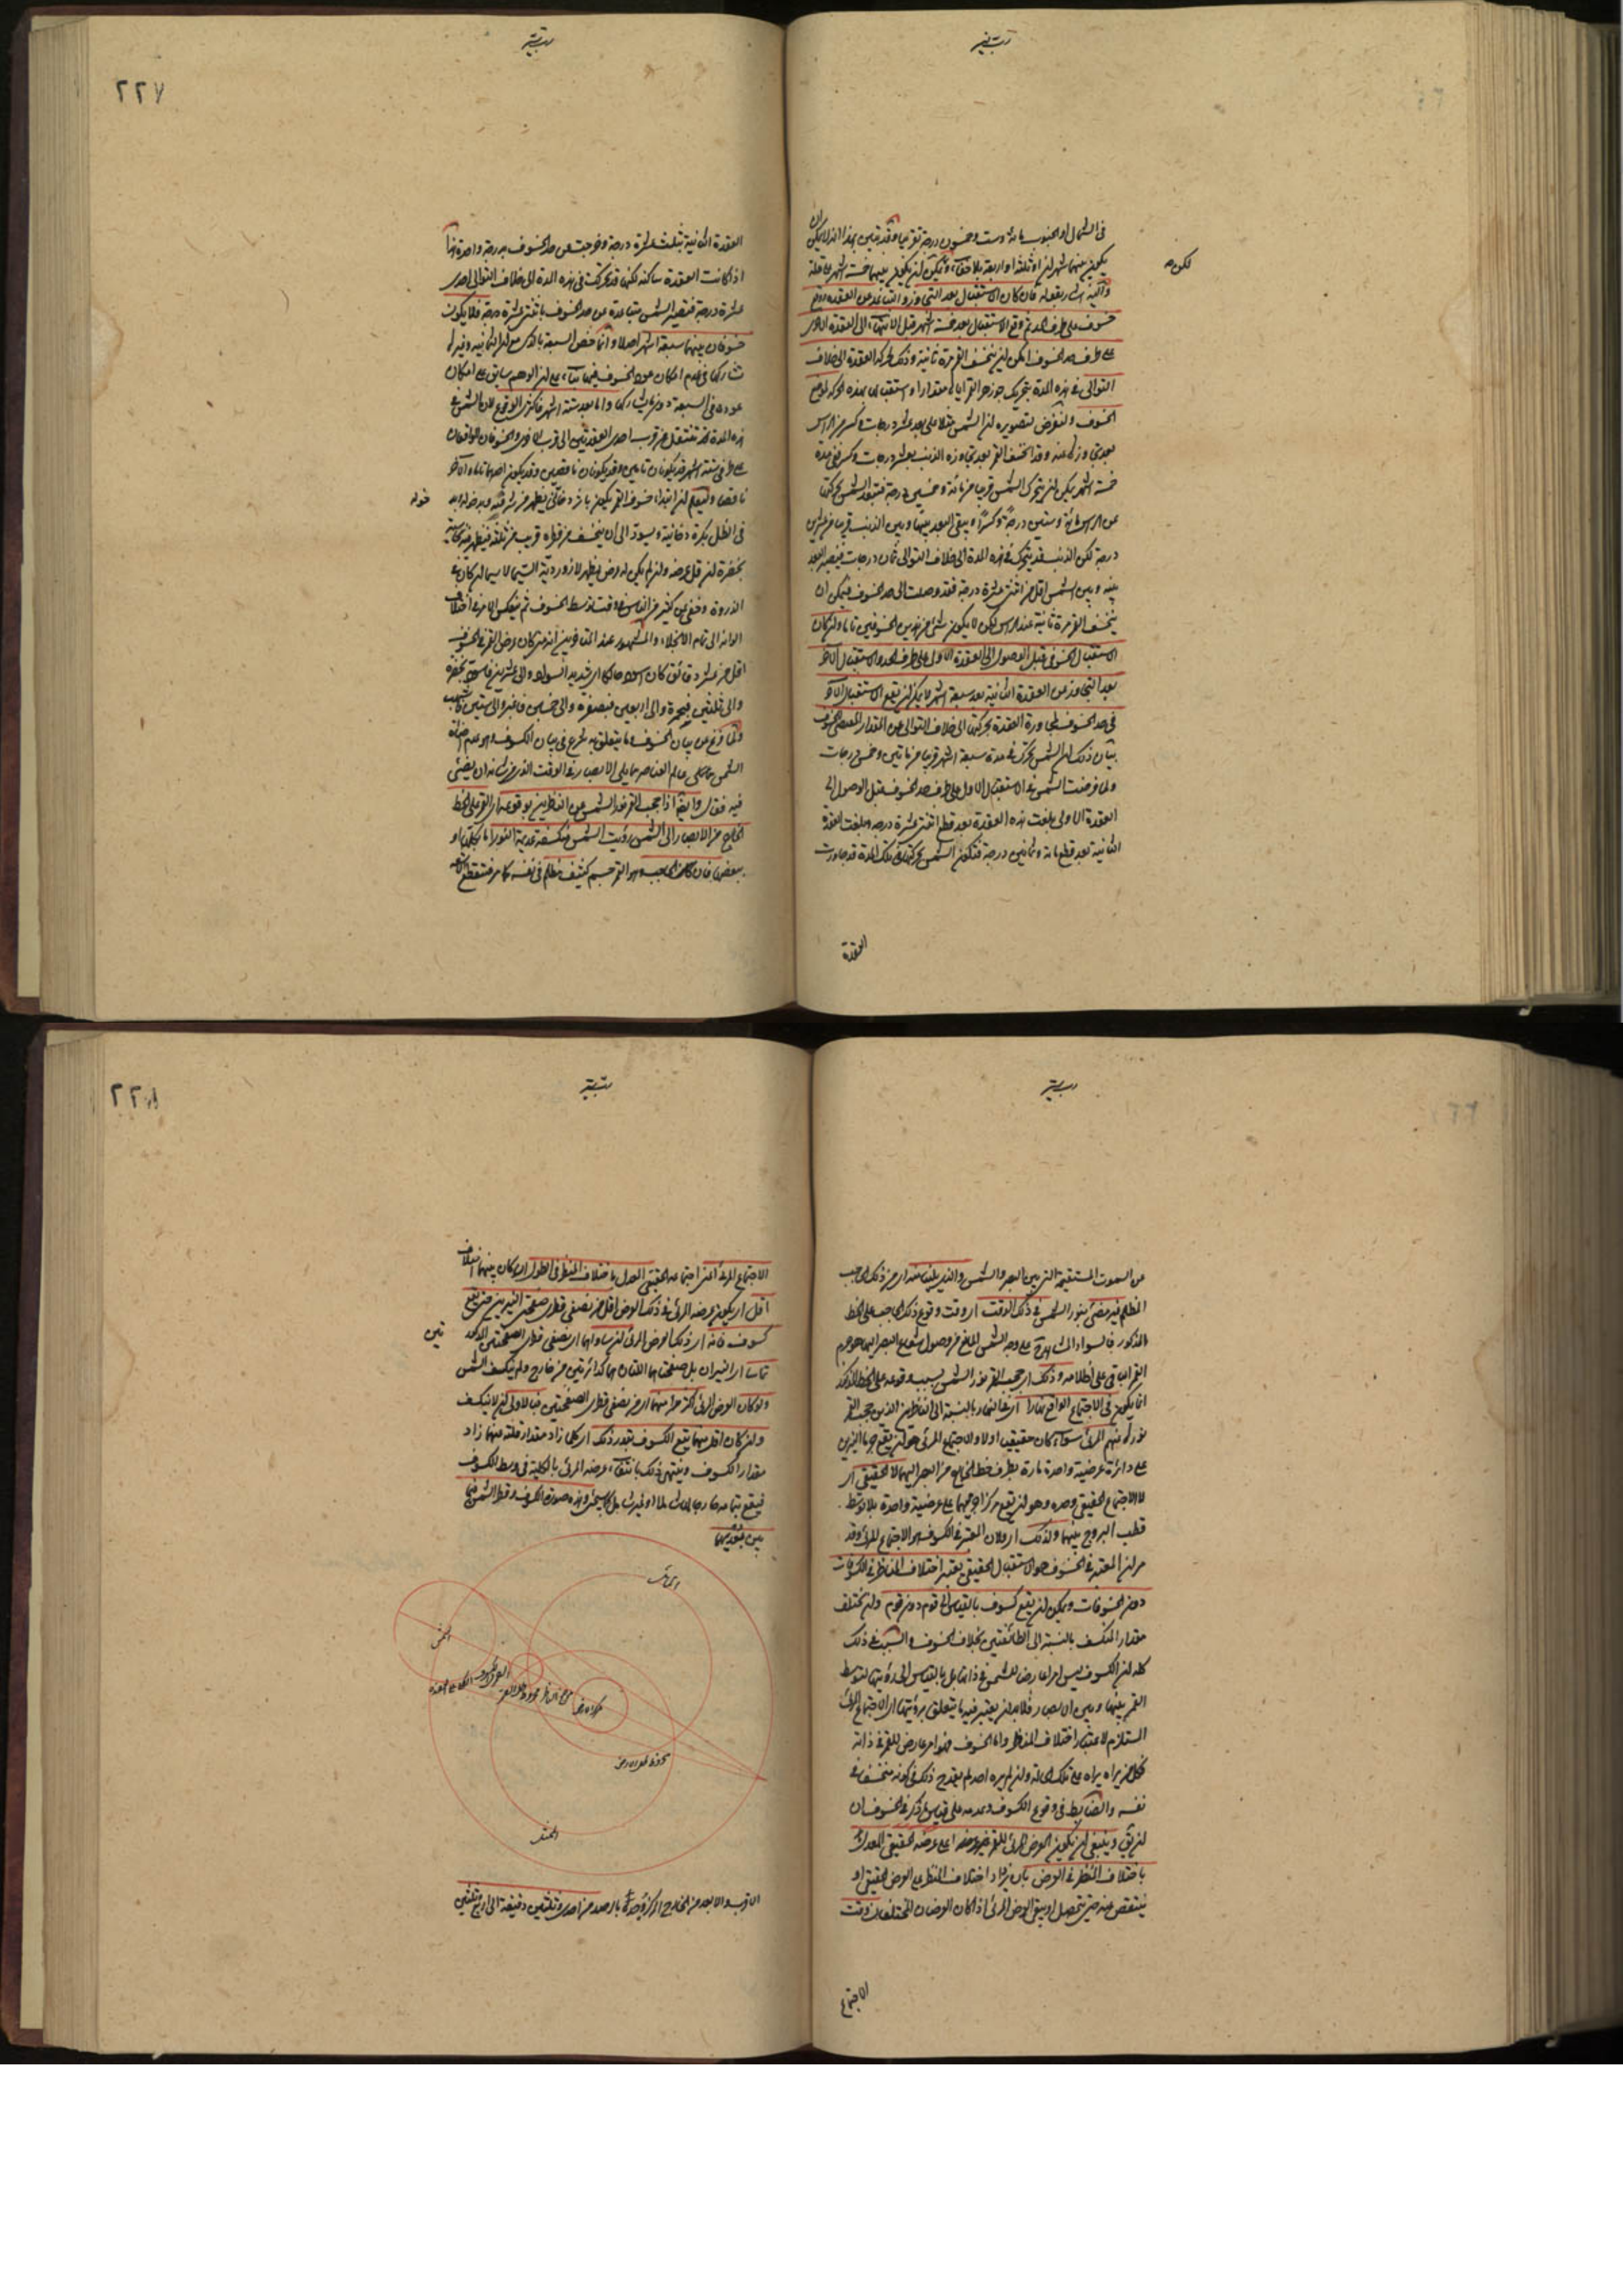 في الشمال او الجنوب مائة وست وخمسون درجة تقريبا وقد تبين بهذا انه لا يمكن ان
يكون بينهما شهران او ثلثة او اربعة بلا خفاء ويمكن ان يكون بينهما خمسة اشهر على قلة
لكن
واليه اشار بقوله فان كان الاستقبال بعد التجاوز والتباعد عن العقدة ووقع
خسوف على طرف الحد ثم وقع الاستقبال بعد خمسة اشهر قبل الانتهاء الى العقدة الاخرى
على طرف حد الخسوف امكن ان ينخسف القمر مرة ثانية وذلك لحركة العقدة الى خلاف
التوالى في هذه المدة بتحريك جوزهر القمر اياها مقدارا
الخسوف ولنفرض لتصويره ان الشمس مثلا على بعد عشر درجات وكسر من الراس
بعد تجاوزها عنه وقد انخسف القمر بعد تجاوزه الذنب بعشر درجات وكسر ففي مدة
خمسة اشهر يمكن ان يتحرك الشمس قريبا من مائة وخمسين درجة فتبعد الشمس بحركتها
عن الراس مائة وستين درجة وكسرا ويبقى البعد بينها وبين الذنب قريبا من عشرين
درجة لكن الذنب قد يتحرك في هذه المدة الى خلاف التوالى ثمان درجات فيصير البعد
بينه وبين الشمس اقل من اثنتى عشرة درجة فقد وصلت الى حد الخسوف فيمكن ان
ينخسف القمر مرة ثانية عند الراس لكن لا يكون شئ من هذين الخسوفين تاما ولو كان
الاستقبال الخسوفى قبل الوصول الى العقدة الاولى على طرف الحد والاستقبال الآخر
بعد التجاوز عن العقدة الثانية بعد سبعة اشهر لا يمكن ان يقع الاستقبال الآخر
في حد الخسوف لمجاورة العقدة بحركتها الى خلاف التوالى عن المقدار المقتضى للخسوف
بيان ذلك ان الشمس تتحرك في مدة سبعة اشهر قريبا من مائتين وخمس درجات
ولما فرضت الشمس في الاستقبال الاول على طرف حد الخسوف قبل الوصول الى
العقدة الاولى بلغت هذه العقدة بعد قطع اثنتى عشرة درجة وبلغت العقدة
الثانية بعد قطع مائة وثمانين درجة فتكون الشمس بحركتها في تلك المدة قد جاوزت
العقدة
٢٢٧
العقدة الثانية بثلث عشرة درجة وخرجت عن حد الخسوف بدرجة واحدة هذا
اذا كانت العقدة ساكنة لكنها قد تحركت في هذه المدة الى خلاف التوالى احدى
عشرة درجة فتصير الشمس متباعدة عن حد الخسوف باثنتى عشرة درجة فلا يكون
خسوفان بينهما سبعة اشهر اصلا وانما خص السبعة بالذكر مع ان الثمانية وغيرها
تشاركها في عدم امكان عود الخسوف فيها بناء على ان الوهم سابق الى امكان
عوده في السبعة دون ما يشاركها واما بعد ستة اشهر فاكثرى الوقوع لان الشمس في
هذه المدة قد تنتقل من قرب احدى العقدتين الى قرب الاخرى والخسوفان الواقعان
على طرفى ستة اشهر قد يكونان تامين وقد يكونان ناقصين وقد يكون احدهما تاما والآخر
ناقصا وليعلم ان ابتداء خسوف القمر يكون باثر دخانى يظهر من شرقيه وبدخوله
في الظل بكرة دخانية ويسود الى ان ينخسف من قطره قريب من ثلثه فيظهر فيه كابة
بخضرة ان قل عرضه وان لم يكن له عرض يظهر لازوردية السيما ان كان في
الذروة وخفى عن كثير من الناس في وقت توسط الخسوف ثم ينعكس الامر في اختلاف
الوانه الى تمام الانجلاء والمشهور عند المتاخرين انه متى كان عرض القمر في الخسوف
اقل من عشر دقائق كان اسود حالكا اى شديد السواد والى عشرين فاسود بخضرة
والى ثلثين فبحمرة والى اربعين فبصفرة والى خمسين فاغبر والى ستين فاشهب
ولما فرغ من بيان الخسوف وما يتعلق به شرع في بيان الكسوف وهو عدم اضاءة
الشمس عالم العناصر مما يلى الابصار في الوقت الذى من شانها ان يضئ
فيه فقال وايضا اذا حجب القمر نور الشمس عن الناظرين بوقوعه اى القمر على الخط
الخارج من الابصار الى الشمس رؤيت الشمس منكسفة عديمة النور اما بكليتها او
ببعضها فان كان الحاجب هو القمر جسم كثيف مظلم في نفسه كما مر فتقطع
عن السموت المستقيمة التى بين البصر والشمس والذى يلينا منه اى من ذلك الحاجب
المظلم غير مضئ بنور الشمس في ذلك الوقت اى وقت وقوع ذلك الحاجب على الخط
المذكور فالسواد المشاهد على وجه الشمس المانع من وصول شعاع البصر اليها هو جرم
القمر الباقى على اظلامه وذلك اى حجب القمر نور الشمس بسبب وقوعه على الخط المذكور
انما يكون في الاجتماع الواقع نهارا اى في النهار بالنسبة الى الناظرين الذين حجب القمر
نورها عنهم المرئى سواء كان حقيقيا اولا والاجتماع المرئى هو ان يقع جرما النيرين
على دائرة عرضية واحدة مارة بطرف الخط الخارج من البصر اليهما لا الحقيقى اى
لا الاجتماع الحقيقى وحده وهو ان يقع مركزا جرميهما على عرضية واحدة بلا توسط
قطب البروج بينهما ولذلك اى ولان المعتبر في الكسوف هو الاجتماع المرئى وقد
مر ان المعتبر في الخسوف هو الاستقبال الحقيقى يعتبر اختلاف المناظر في الكسوفات
دون الخسوفات ويمكن ان يقع كسوف بالقياس الى قوم دون قوم وان يختلف
مقدار المنكسف بالنسبة الى الطائفتين بخلاف الخسوف والسبب في ذلك
كله ان الكسوف ليس امرا عارضا للشمس في ذاتها بل بالقياس الى رؤيتها لتوسط
القمر بينها وبين الابصار فلا بد ان يعتبر فيه ما يتعلق برؤيتها اى الاجتماع المرئى
المستلزم لاعتبار اختلاف المنظر واما الخسوف فهو امر عارض للقمر في ذاته
فكل من يراه يراه على تلك الحالة وان لم يره احد لم يقدح ذلك في كونه منخسفا في
نفسه والضابط في وقوع الكسوف وعدمه على قياس ما ذكر في الخسوف ان
ان يق وينبغى ان يكون العرض المرئى للقمر عرضه الحقيقى المعدل
باختلاف المنظر في العرض بان يزاد اختلاف المنظر على العرض الحقيقى او
ينتقص منه حتى يتحصل او يبقى العرض المرئى اذا كان العرضان المختلفان وقت
الاجتماع
٢٢٨
الاجتماع المرئى اعنى اجتماعه الحقيقى المعدل باختلاف المنظر في الطول ان كان بينهما اختلاف
اقل اى يكون عرضه المرئى في ذلك العرض اقل من نصفى قطرى صفحتى النيرين حتى يقع
كسوف فانه اى ذلك العرض المرئى ان ساواهما اى نصفى قطرى الصفحتين المذكورتين
تماسا اى النيران بل صفحتاهما اللتان هما كدائرتين من خارج ولم ينكسف الشمس
ولو كان العرض المرئى اكثر منهما اى من نصفى قطرى الصفحتين فبالاولى ان لا ينكسف
وان كان اقل منهما يقع الكسوف بقدر ذلك اى كلما زاد مقدار قلته منهما زاد
مقدار الكسوف وينتهى ذلك بانتفاء عرضه المرئى بالكلية في وسط الكسوف
وهذه صورة الكسوف وقطر الشمس فيما
بين بعديها
الشمس
مركز الارض
الممثل
الاقرب والابعد من الخارج المركز يوجد بالرصد من احدى وثلثين دقيقة الى اربع وثلثين